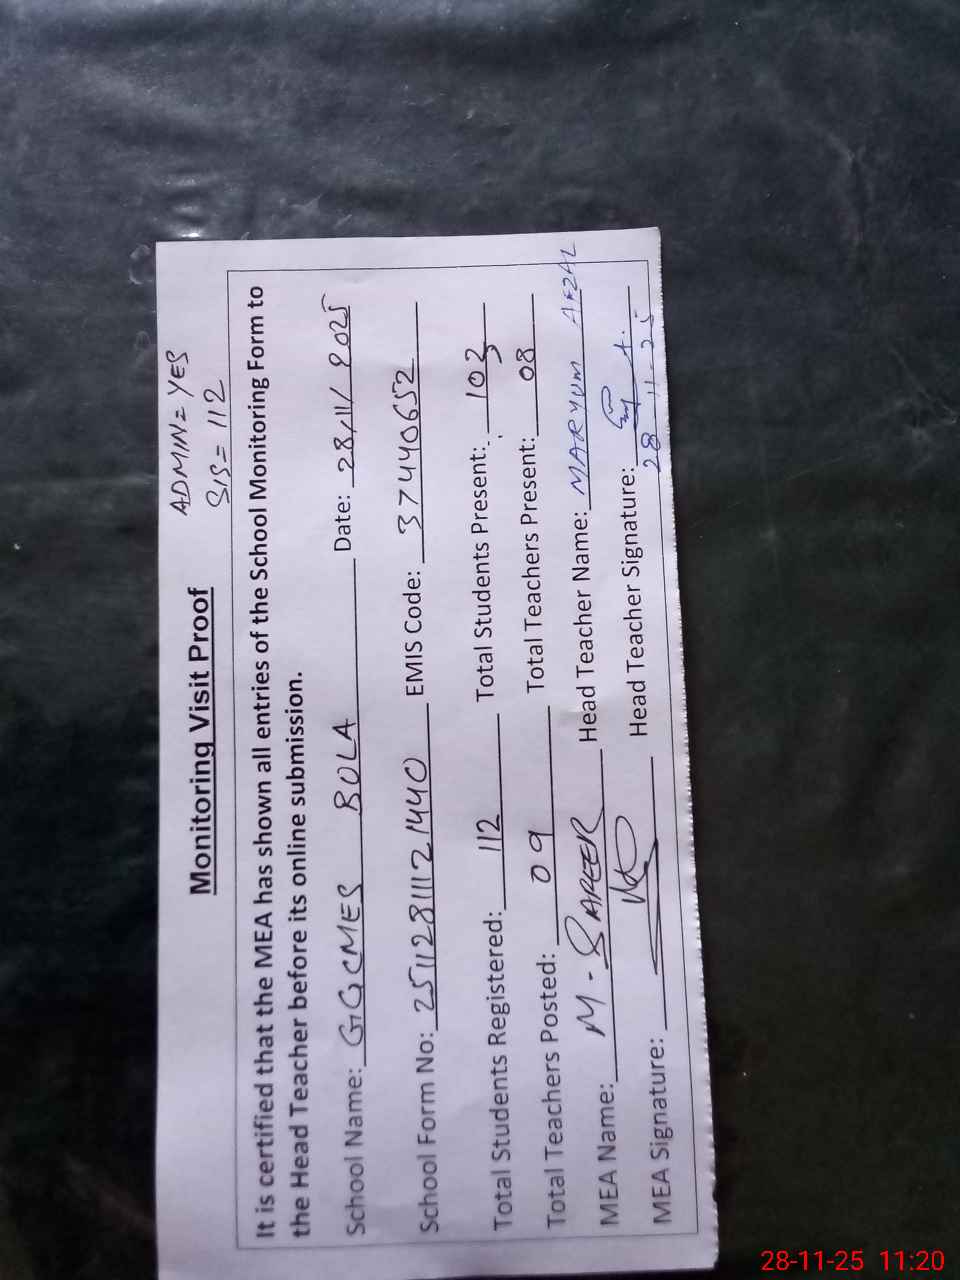 ADMIN = YES
SIS = 112
Monitoring Visit Proof
It is certified that the MEA has shown all entries of the School Monitoring Form to
the Head Teacher before its online submission.
School Name: GGCMES BOLA Date: 28/11/2025
School Form No: 251128111121440 EMIS Code: 37440652
Total Students Registered: 112 Total Students Present: 103
Total Teachers Posted: 09 Total Teachers Present: 08
MEA Name: M - SAPEER Head Teacher Name: MARYUM AFZAL
MEA Signature: Head Teacher Signature:
28-11-25
28-11-25 11:20